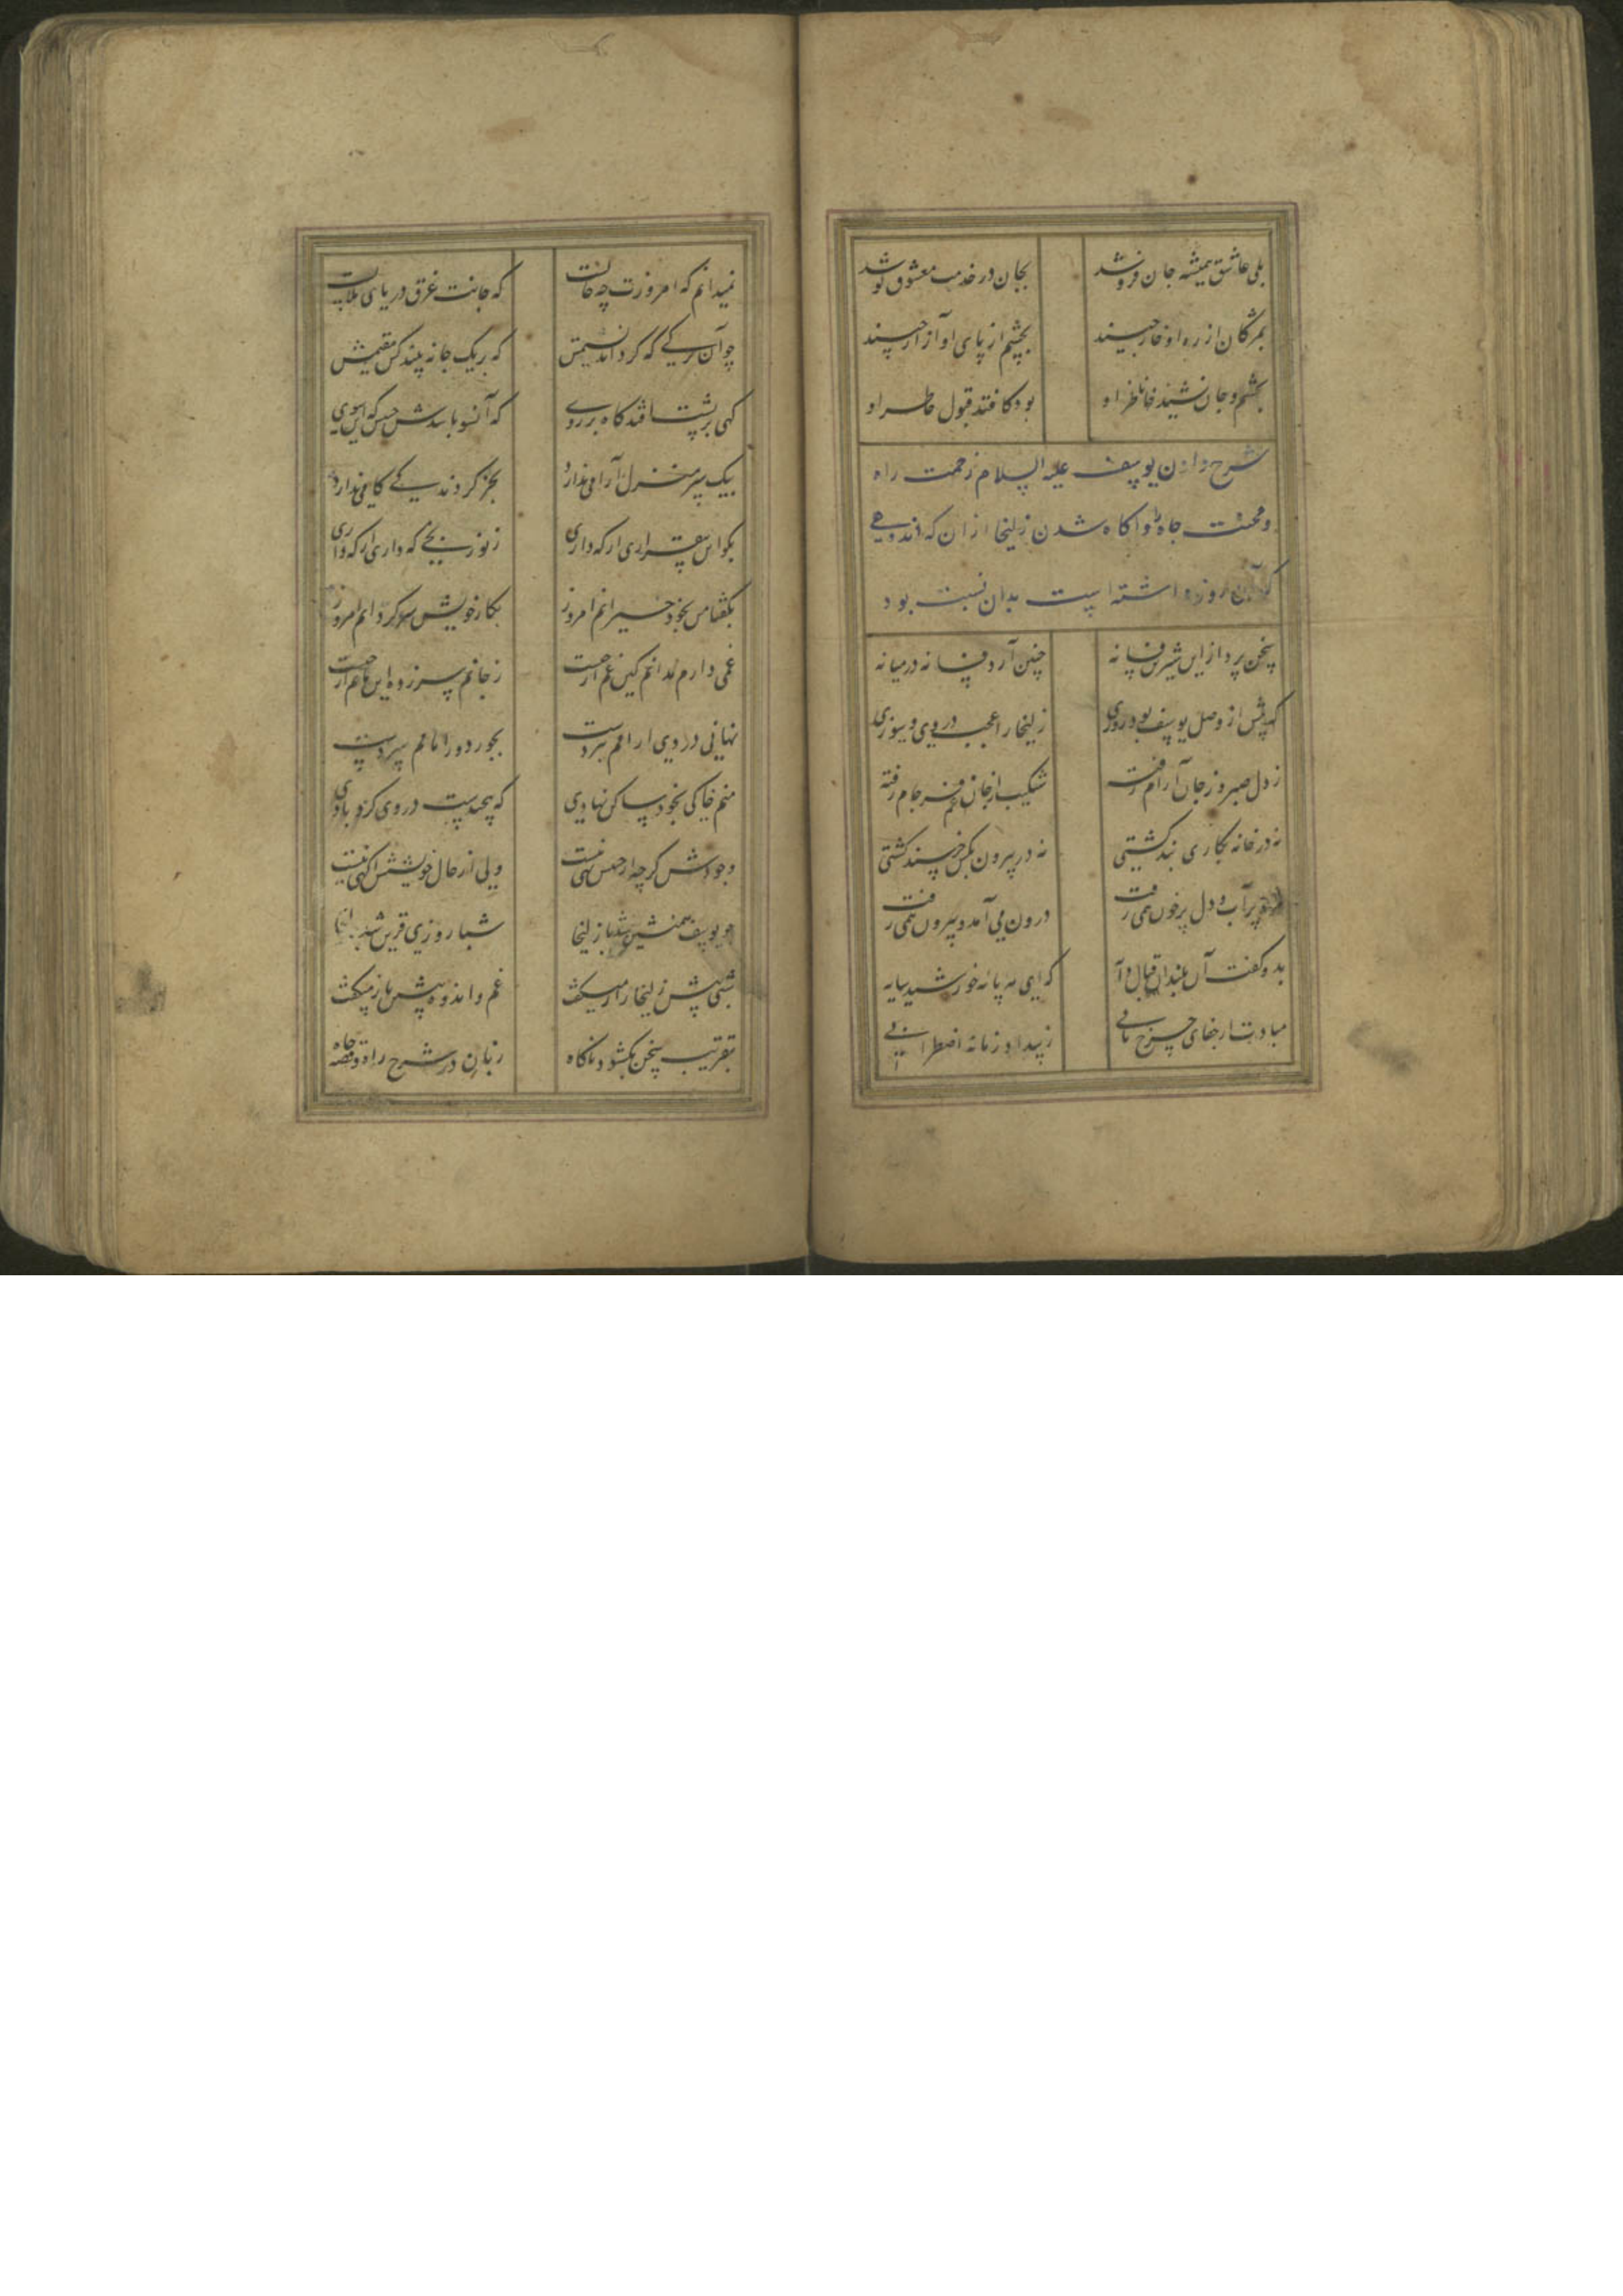 بلی عاشق همیشه جان فروشد بجان در خدمت معشوق کوشد
بمژکان از ره او خار چیند بچشم از پای او آزار چیند
بچشم و جان نشیند خاطر او بود کافتد قبول خاطر او
شرح دادن یوسف علیه السلام زحمت راه
و محنت چاه را و آکاه شدن زلیخا از آن که اندوهی
که آن روز داشته است بدان نسبت بود
سخن پرداز این شیرین فسانه چنین آرد فسانه در میانه
که پیش از وصل یوسف بود روزی زلیخا را عجب دردی و سوزی
ز دل صبر و ز جان آرام رفته شکیب از جان غم فرجام رفته
نه در خانه بکاری بند کشتی نه در بیرون بکس خرسند کشتی
پر آب و دل پر خون همی رفت درون می آمد و بیرون همی رفت
بدو کفت آن بلند اقبال دا که ای مه پایه خورشید سایه
مبادت از جفای چرخ تابی ز بیداد زمانه اضطرابی
نمیدانم که امروزت چه حالست که جانت غرق دریای
چو آن برکی که کرداند نسیمش که بر یک جا نه بیند کس مقیمش
کهی بر پشت افتد کاه بر روی که آنسو باشدش جنبش که این سوی
بیک سر منزل آرامی ندارد بجز کردندکی کامی ندارد
بکو این بیقراری از که داری ز نو رنجی که داری از که داری
بکفتا من بخود حیرانم امروز بکار خویش سرکردانم امروز
غمی دارم ندانم کین غم از چیست ز جانم سر زده این ماتم از چیست
نهانی دردی آرامم ببردست بجور دور ایامم سپردست
منم خاکی بخود ساکن نهادی که پیچیدست در وی کردبادی
وجودش کرچه از جنبش تهی نیست ولی از حال خویشش آکهی نیست
چو یوسف همنشین شد با زلیخا شبا روزی قرین شد با زلیخا
شبی پیش زلیخا راز میکفت غم و اندوه پیشین باز میکفت
بتقریب سخن بکشود ناکاه زبان در شرح راه و قصه چاه